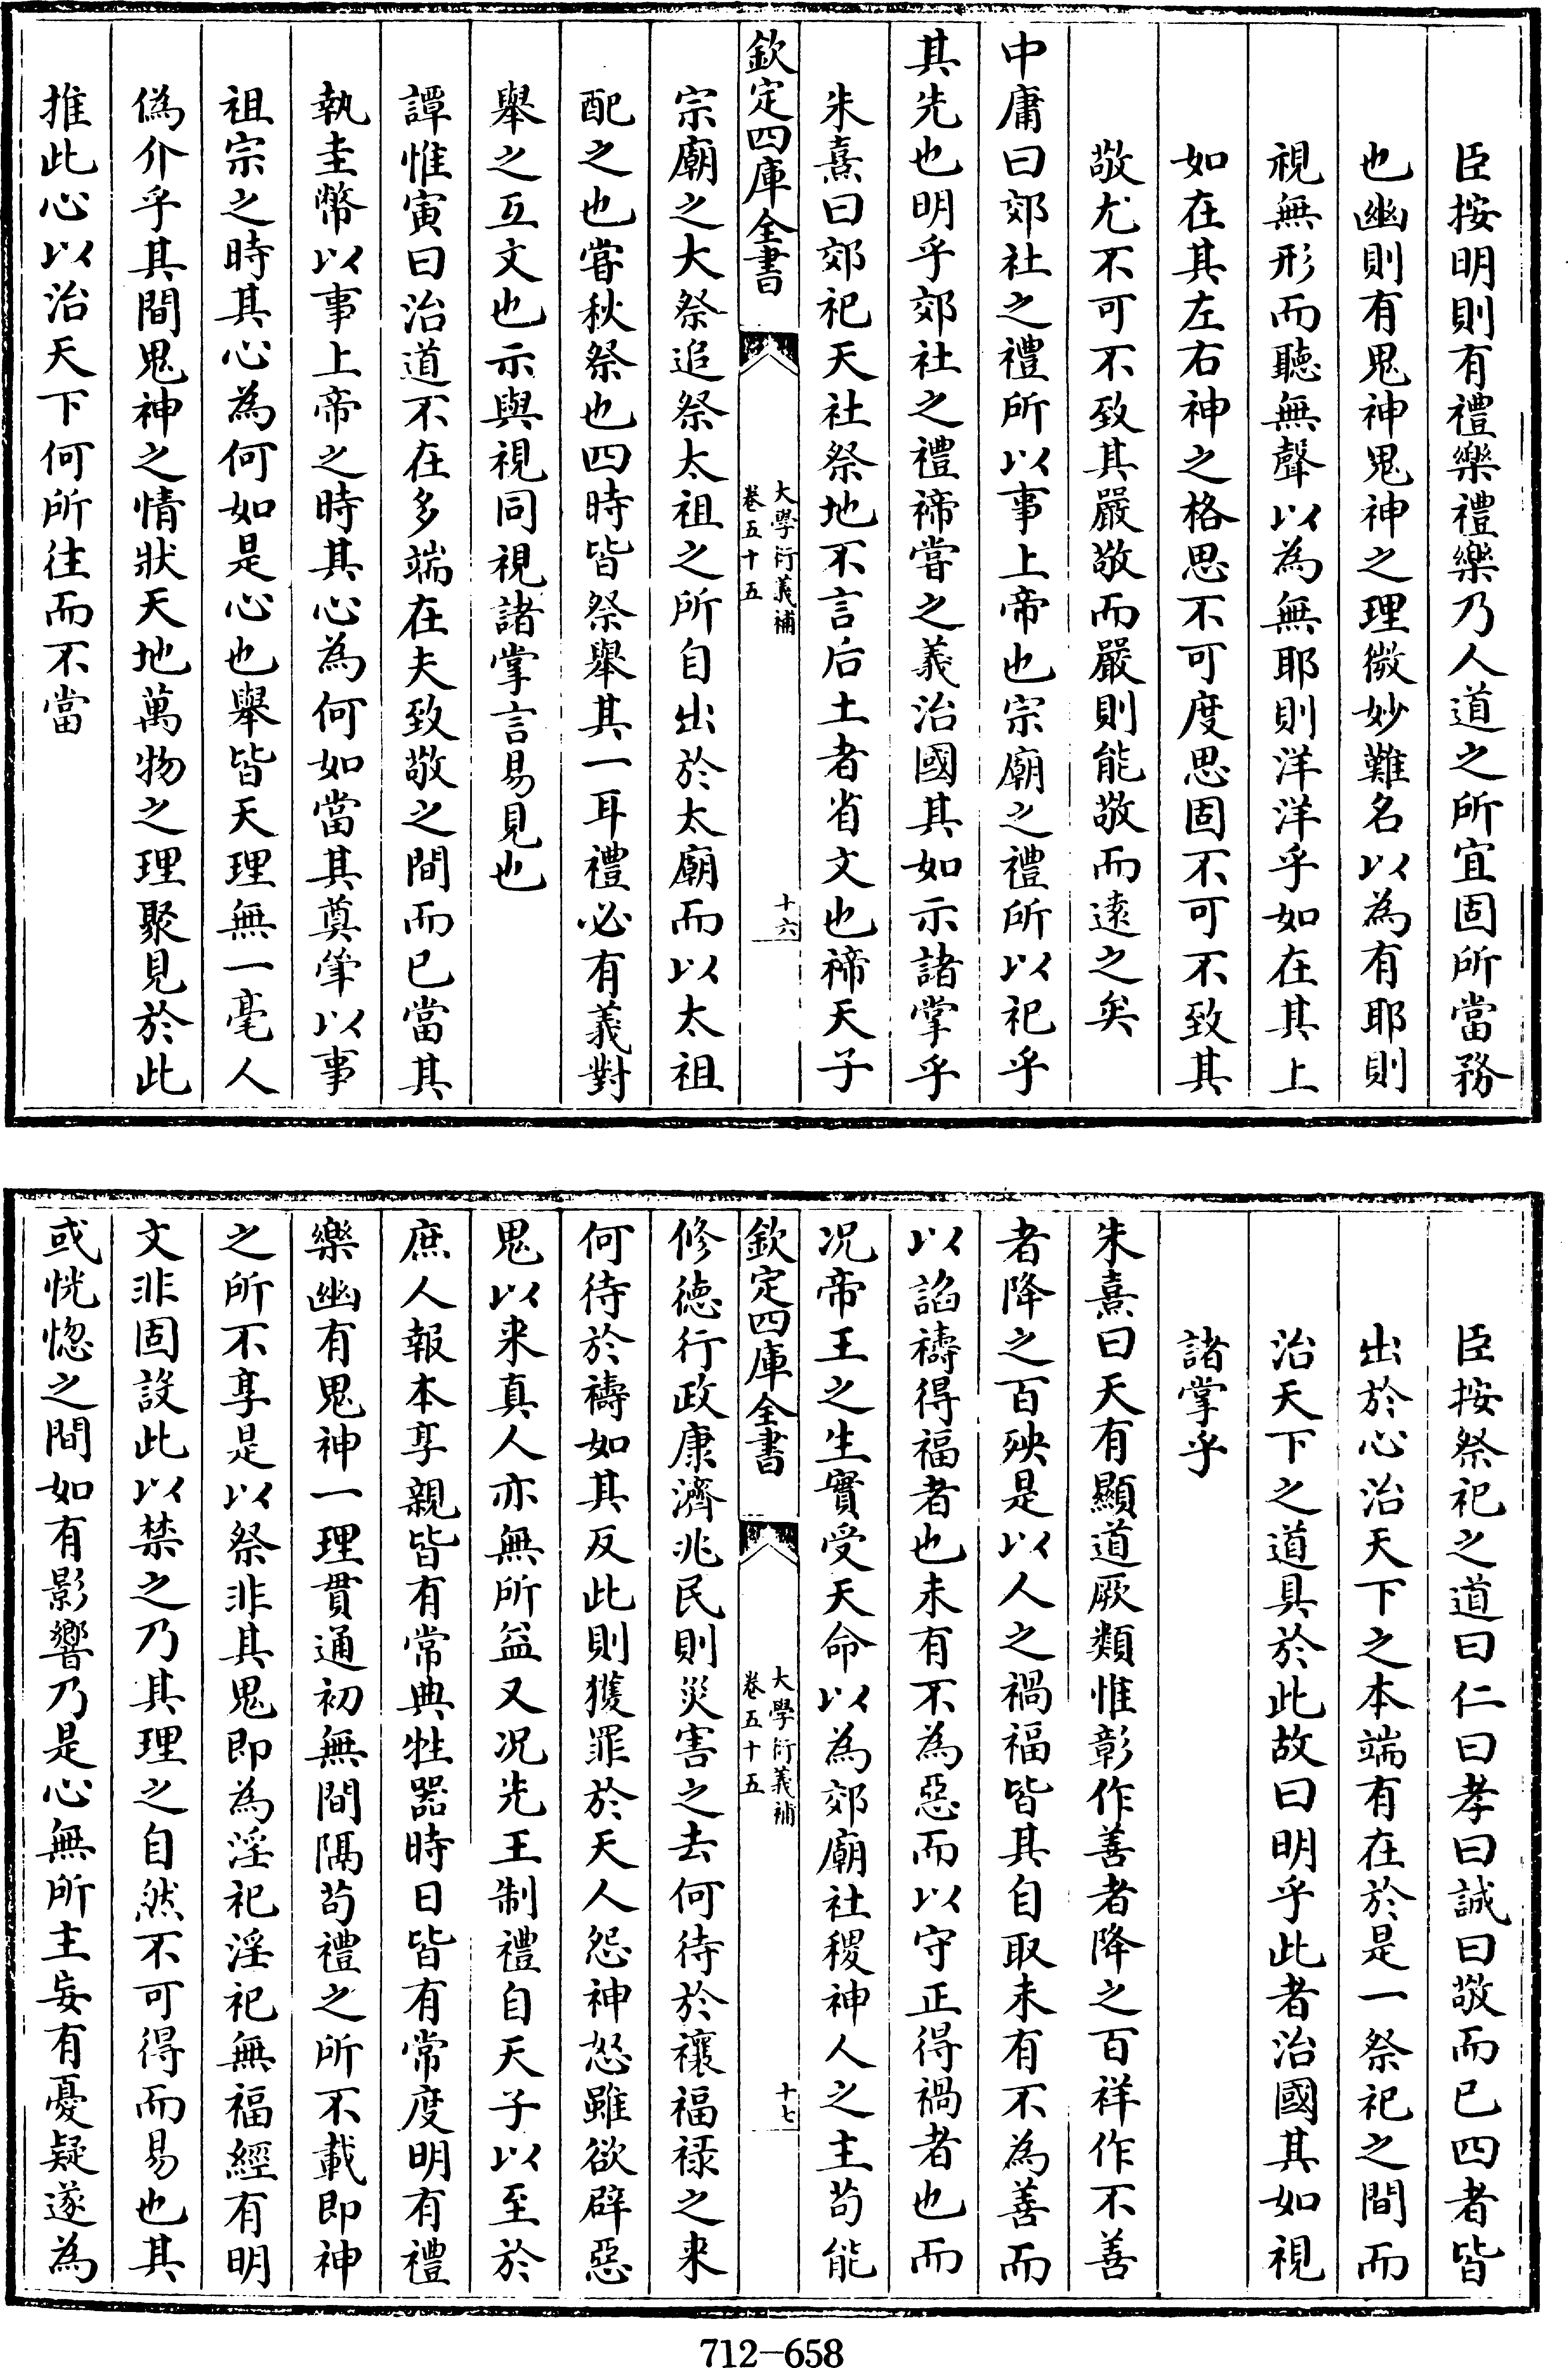 臣按明則有禮樂禮樂乃人道之所宜固所當務
也幽則有鬼神鬼神之理微妙難名以為有耶則
視無形而聽無聲以為無耶則洋洋乎如在其上
如在其左右神之格思不可度思固不可不致其
敬尤不可不致其嚴敬而嚴則能敬而遠之矣
中庸曰郊社之禮所以事上帝也宗廟之禮所以祀乎
其先也明乎郊社之禮禘嘗之義治國其如示諸掌乎
朱熹曰郊祀天社祭地不言后土者省文也禘天子
欽定四庫全書
大學衍義補
卷五十五
十六
宗廟之大祭追祭太祖之所自出於太廟而以太祖
配之也嘗秋祭也四時皆祭舉其一耳禮必有義對
舉之互文也示與視同視諸掌言易見也
譚惟寅曰治道不在多端在夫致敬之間而已當其
執圭幣以事上帝之時其心為何如當其奠斝以事
祖宗之時其心為何如是心也舉皆天理無一毫人
偽介乎其間鬼神之情狀天地萬物之理聚見於此
推此心以治天下何所往而不當
臣按祭祀之道曰仁曰孝曰誠曰敬而已四者皆
出於心治天下之本端有在於是一祭祀之間而
治天下之道具於此故曰明乎此者治國其如視
諸掌乎
朱熹曰天有顯道厥類惟彰作善者降之百祥作不善
者降之百殃是以人之禍福皆其自取未有不為善而
以諂禱得福者也未有不為惡而以守正得禍者也而
况帝王之生實受天命以為郊廟社稷神人之主苟能
欽定四庫全書
大學衍義補
卷五十五
十七
修德行政康濟兆民則災害之去何待於禳福祿之來
何待於禱如其反此則獲罪於天人怨神怒雖欲辟惡
鬼以来真人亦無所益又况先王制禮自天子以至於
庶人報本享親皆有常典牲器時日皆有常度明有禮
樂幽有鬼神一理貫通初無間隔苟禮之所不載即神
之所不享是以祭非其鬼即為淫祀淫祀無福經有明
文非固設此以禁之乃其理之自然不可得而易也其
或恍惚之間如有影響乃是心無所主妄有憂疑遂為
712-658